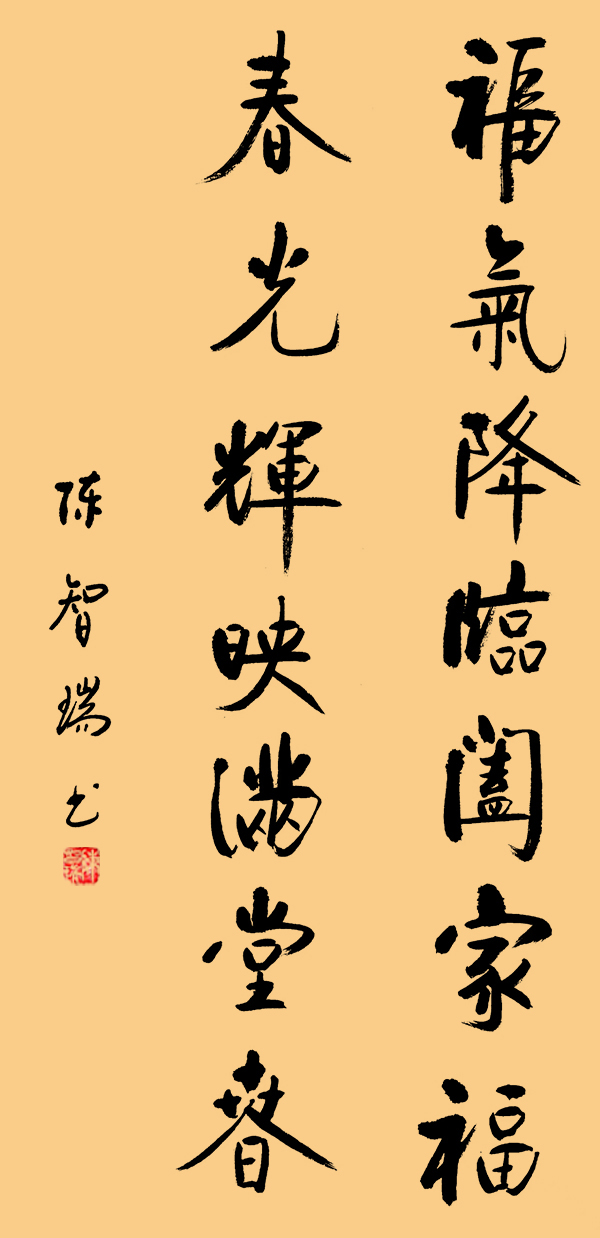 福氣降臨闔家福
春光輝映满堂春
陈智瑞书